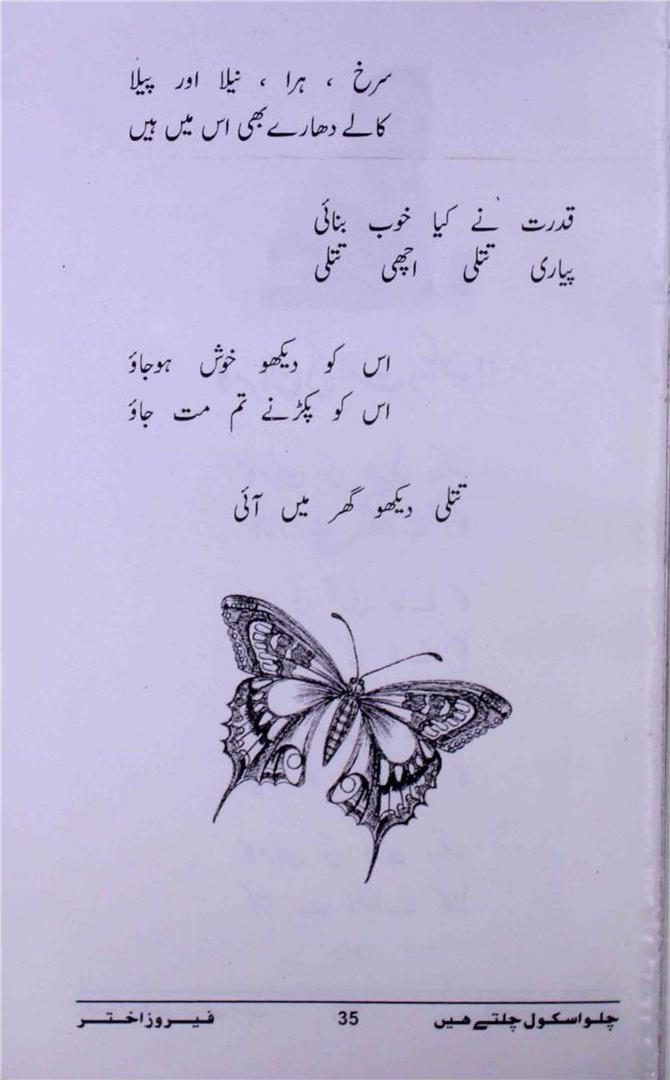 سرخ ، ہرا ، نیلا اور پیلا
کالے دھارے بھی اس میں ہیں
قدرت نے کیا خوب بنائی
پیاری تتلی اچھی تتلی
اس کو دیکھو خوش ہوجاؤ
اس کو پکڑنے تم مت جاؤ
تتلی دیکھو گھر میں آئی
چلو اسکول چلتے ہیں 35 فیروز اختر